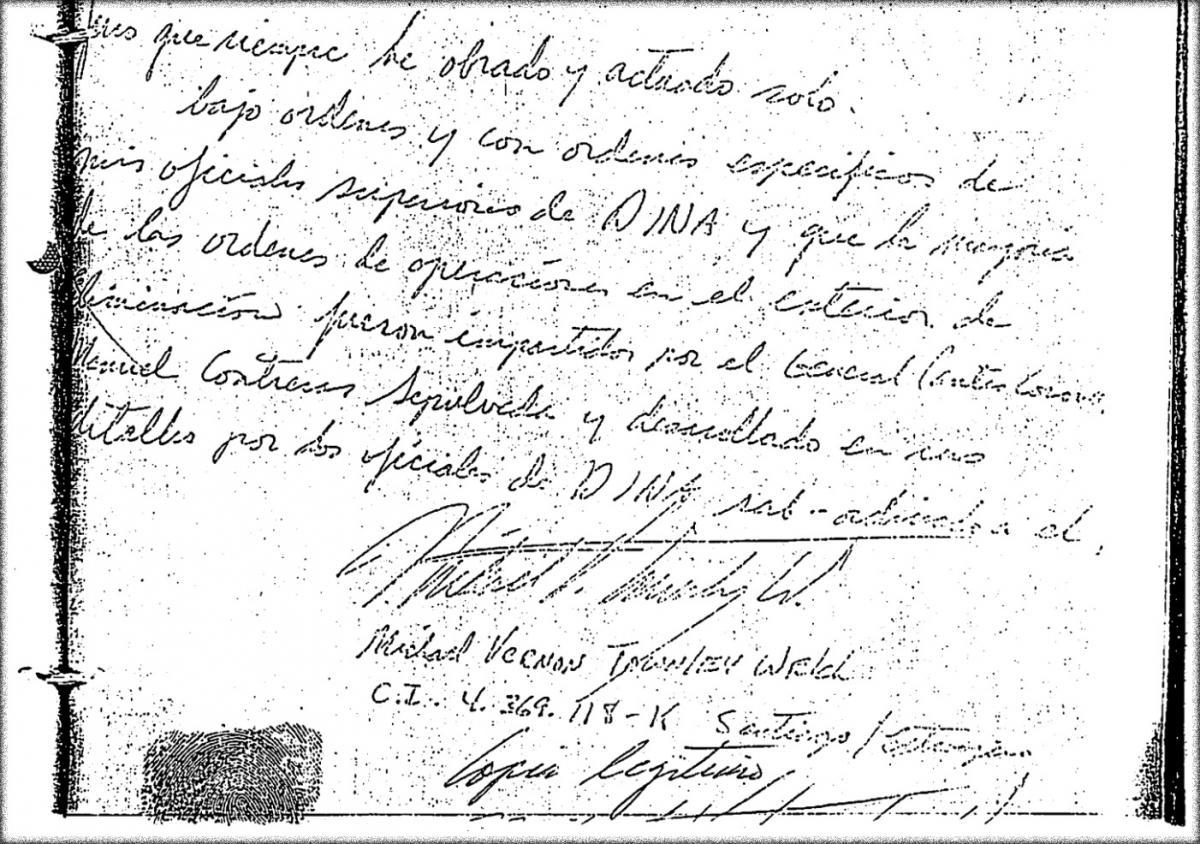 que siempre he obrado y actuado solo.
bajo ordenes y con ordenes especificos de
mis oficiales superiores de DINA y que la mayoria
de las ordenes de operaciones en el exterior de
eliminación fueron impartidos por el General
Manuel Contreras Sepulveda y desarrollado en sus
detalles por los oficiales de DINA sub-ordinado a el,
Michael Vernon Townley Welch
C.I. 4.369.118-K Santiago / Extranjero
Copia legitima